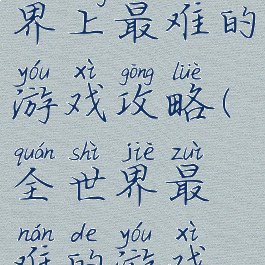 界上最难的
yóu xì gōng lüè
游戏攻略(
quán shì jiè zuì
全世界最
nán de yóu xì
难的游戏